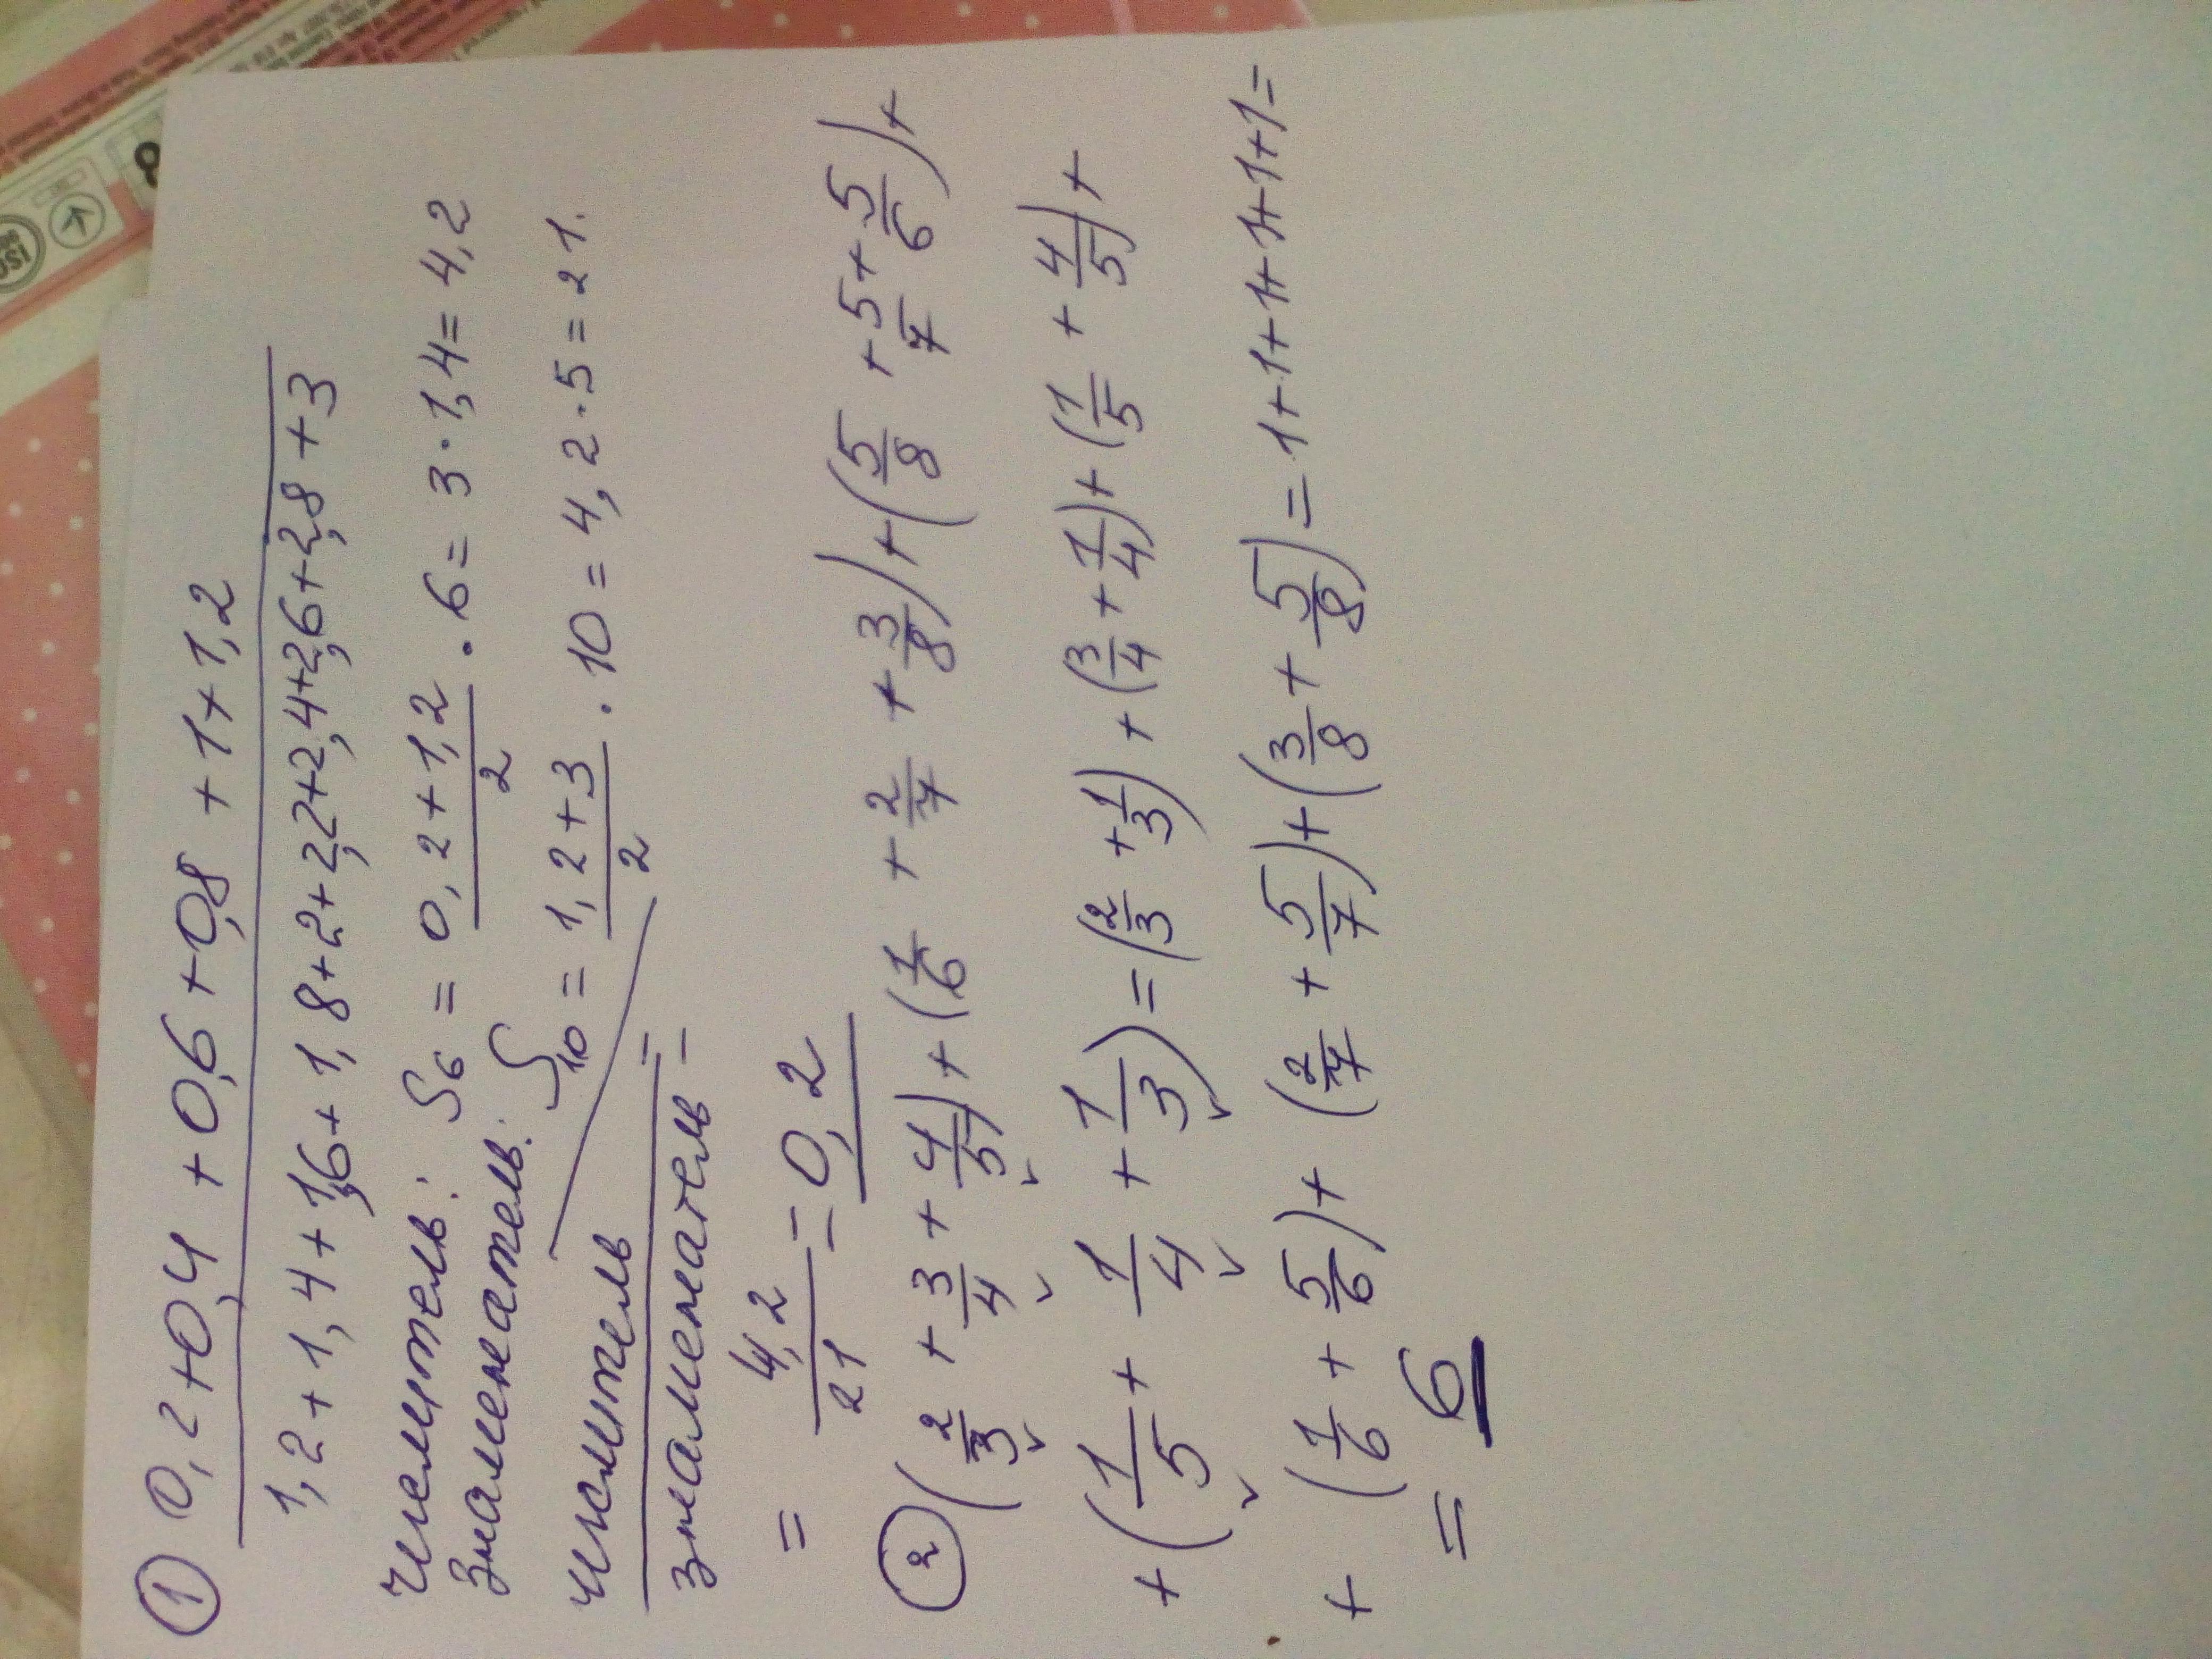 ① 0,2+0,4+0,6+0,8+1+1,2
1,2+1,4+1,6+1,8+2+2,2+2,4+2,6+2,8+3
Числитель: S₆ = (0,2+1,2)/2 · 6 = 3 · 1,4 = 4,2
Знаменатель: S₁₀ = (1,2+3)/2 · 10 = 4,2 · 5 = 21.
числитель
знаменатель =
= 4,2/21 = 0,2
② (2/3 + 3/4 + 4/5) + (1/6 + 2/7 + 3/8) + (5/8 + 5/7 + 5/6) +
+ (1/5 + 1/4 + 1/3) = (2/3 + 1/3) + (3/4 + 1/4) + (1/5 + 4/5) +
+ (1/6 + 5/6) + (2/7 + 5/7) + (3/8 + 5/8) = 1+1+1+1+1+1=
= 6
8
ISO